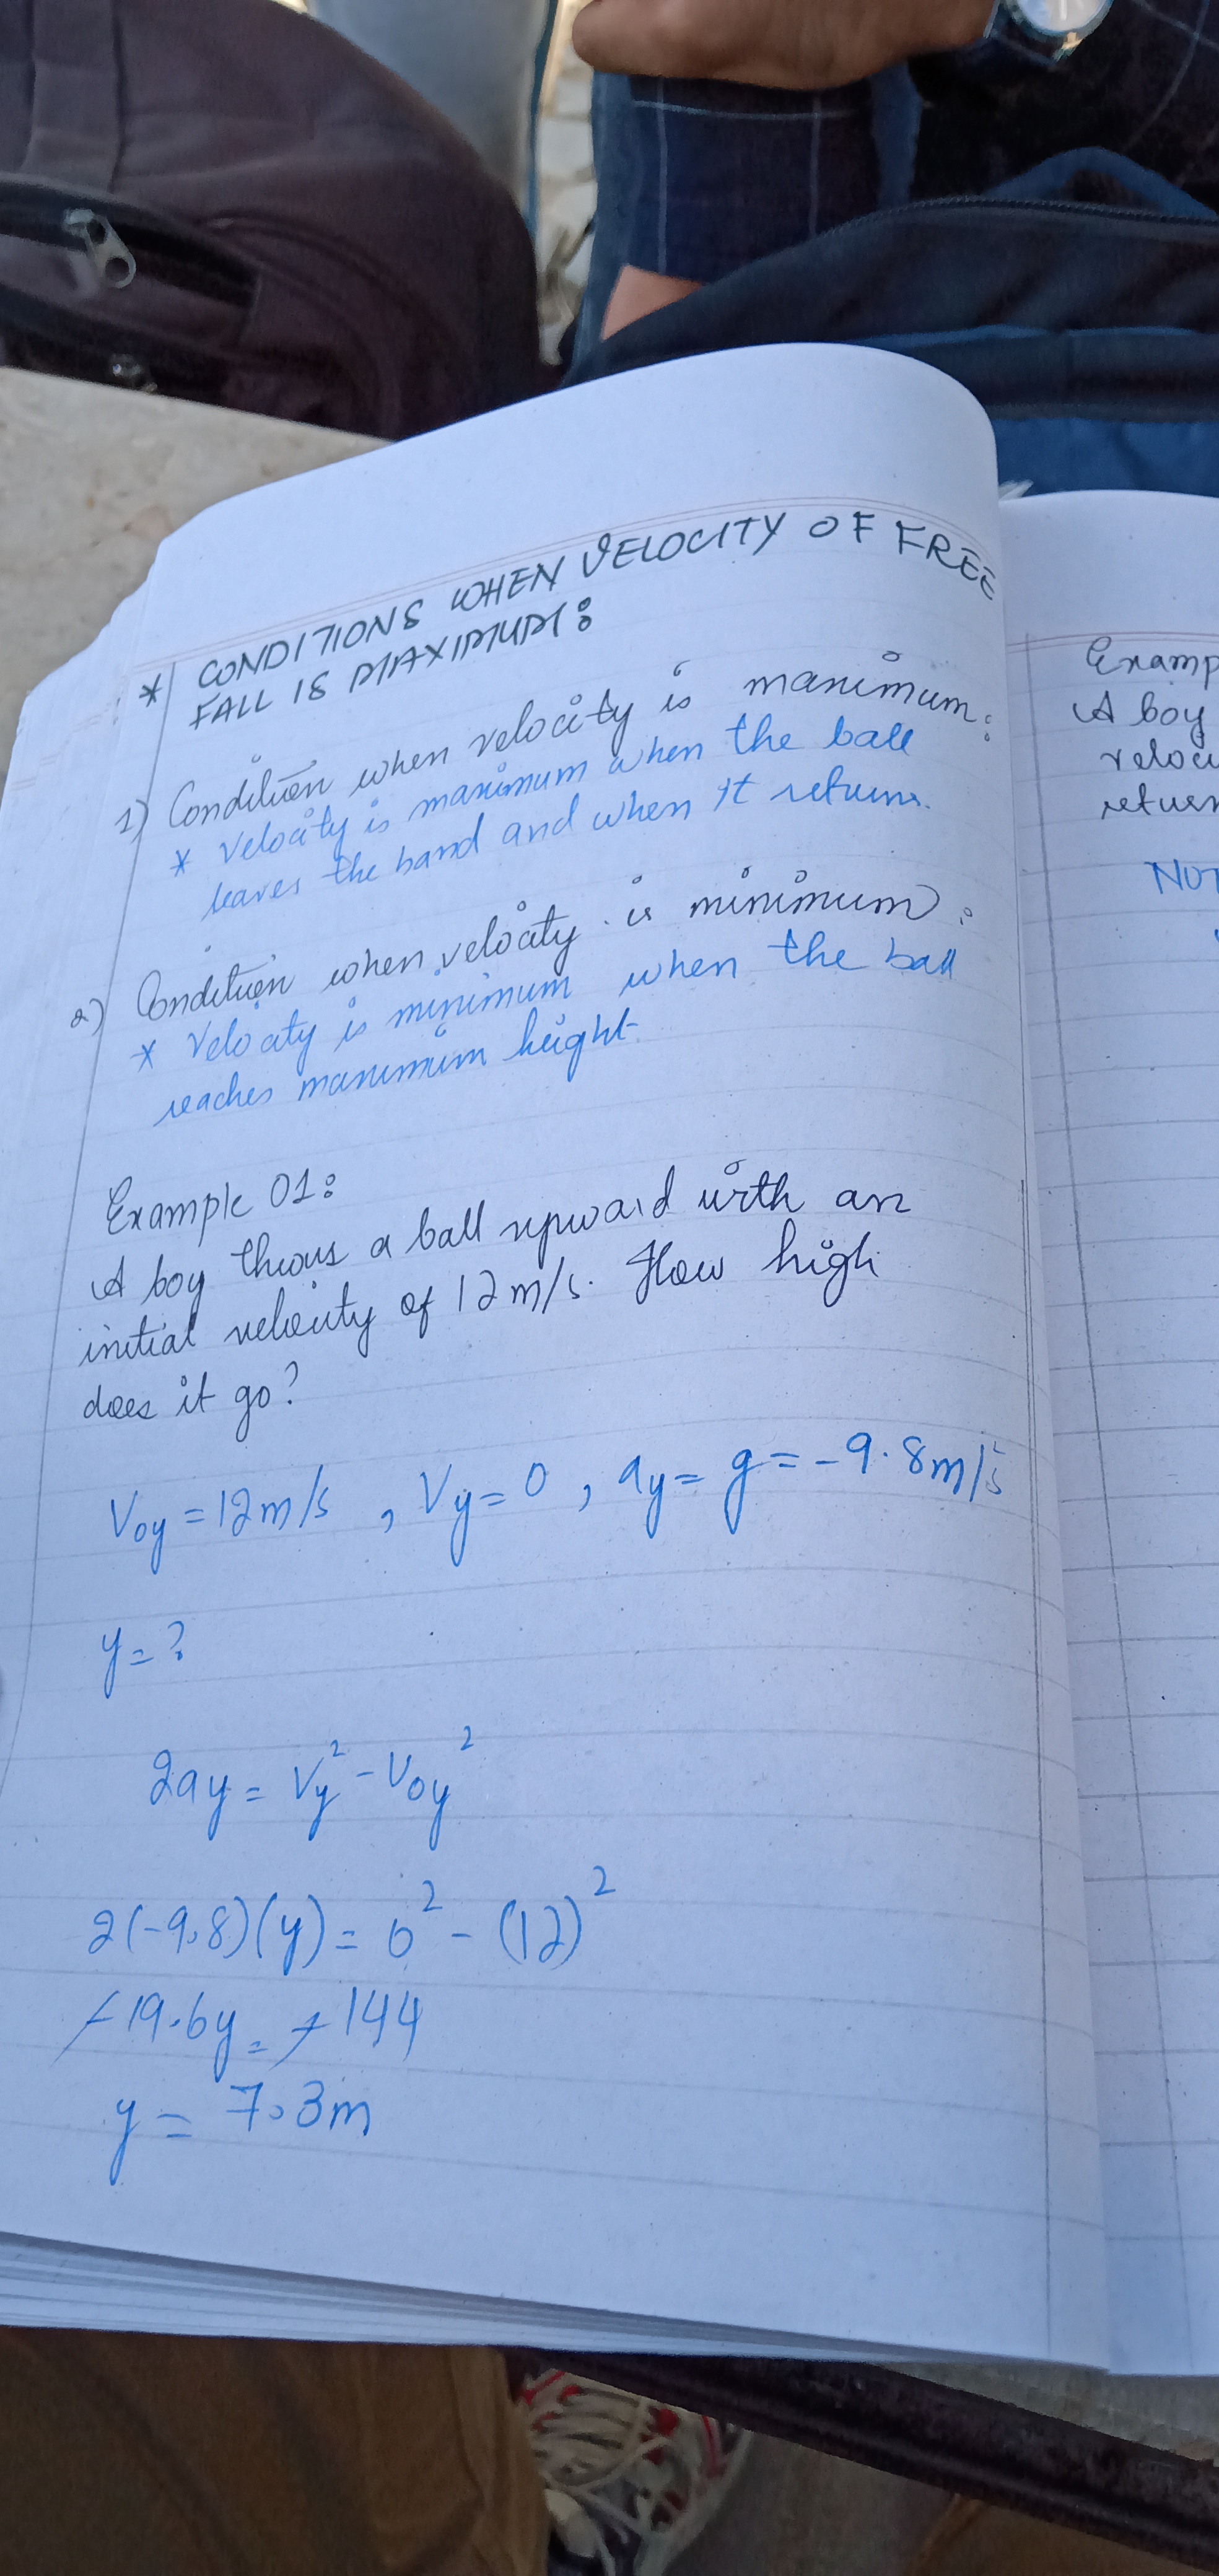 * CONDITIONS WHEN VELOCITY OF FREE
FALL IS MAXIMUM:
1) Condition when velocity is maximum:
* Velocity is maximum when the ball
leaves the hand and when it returns.
2) Condition when velocity is minimum:
* Velocity is minimum when the ball
reaches maximum height.
Example 01:
A boy throws a ball upward with an
initial velocity of 12m/s. How high
does it go?
Voy = 12m/s , Vy = 0 , ay = g = -9.8m/s²
y = ?
2ay = Vy² - Voy²
2(-9.8)(y) = 0² - (12)²
-19.6y = -144
y = 7.3m
Examp
A boy
veloci
return
NOT